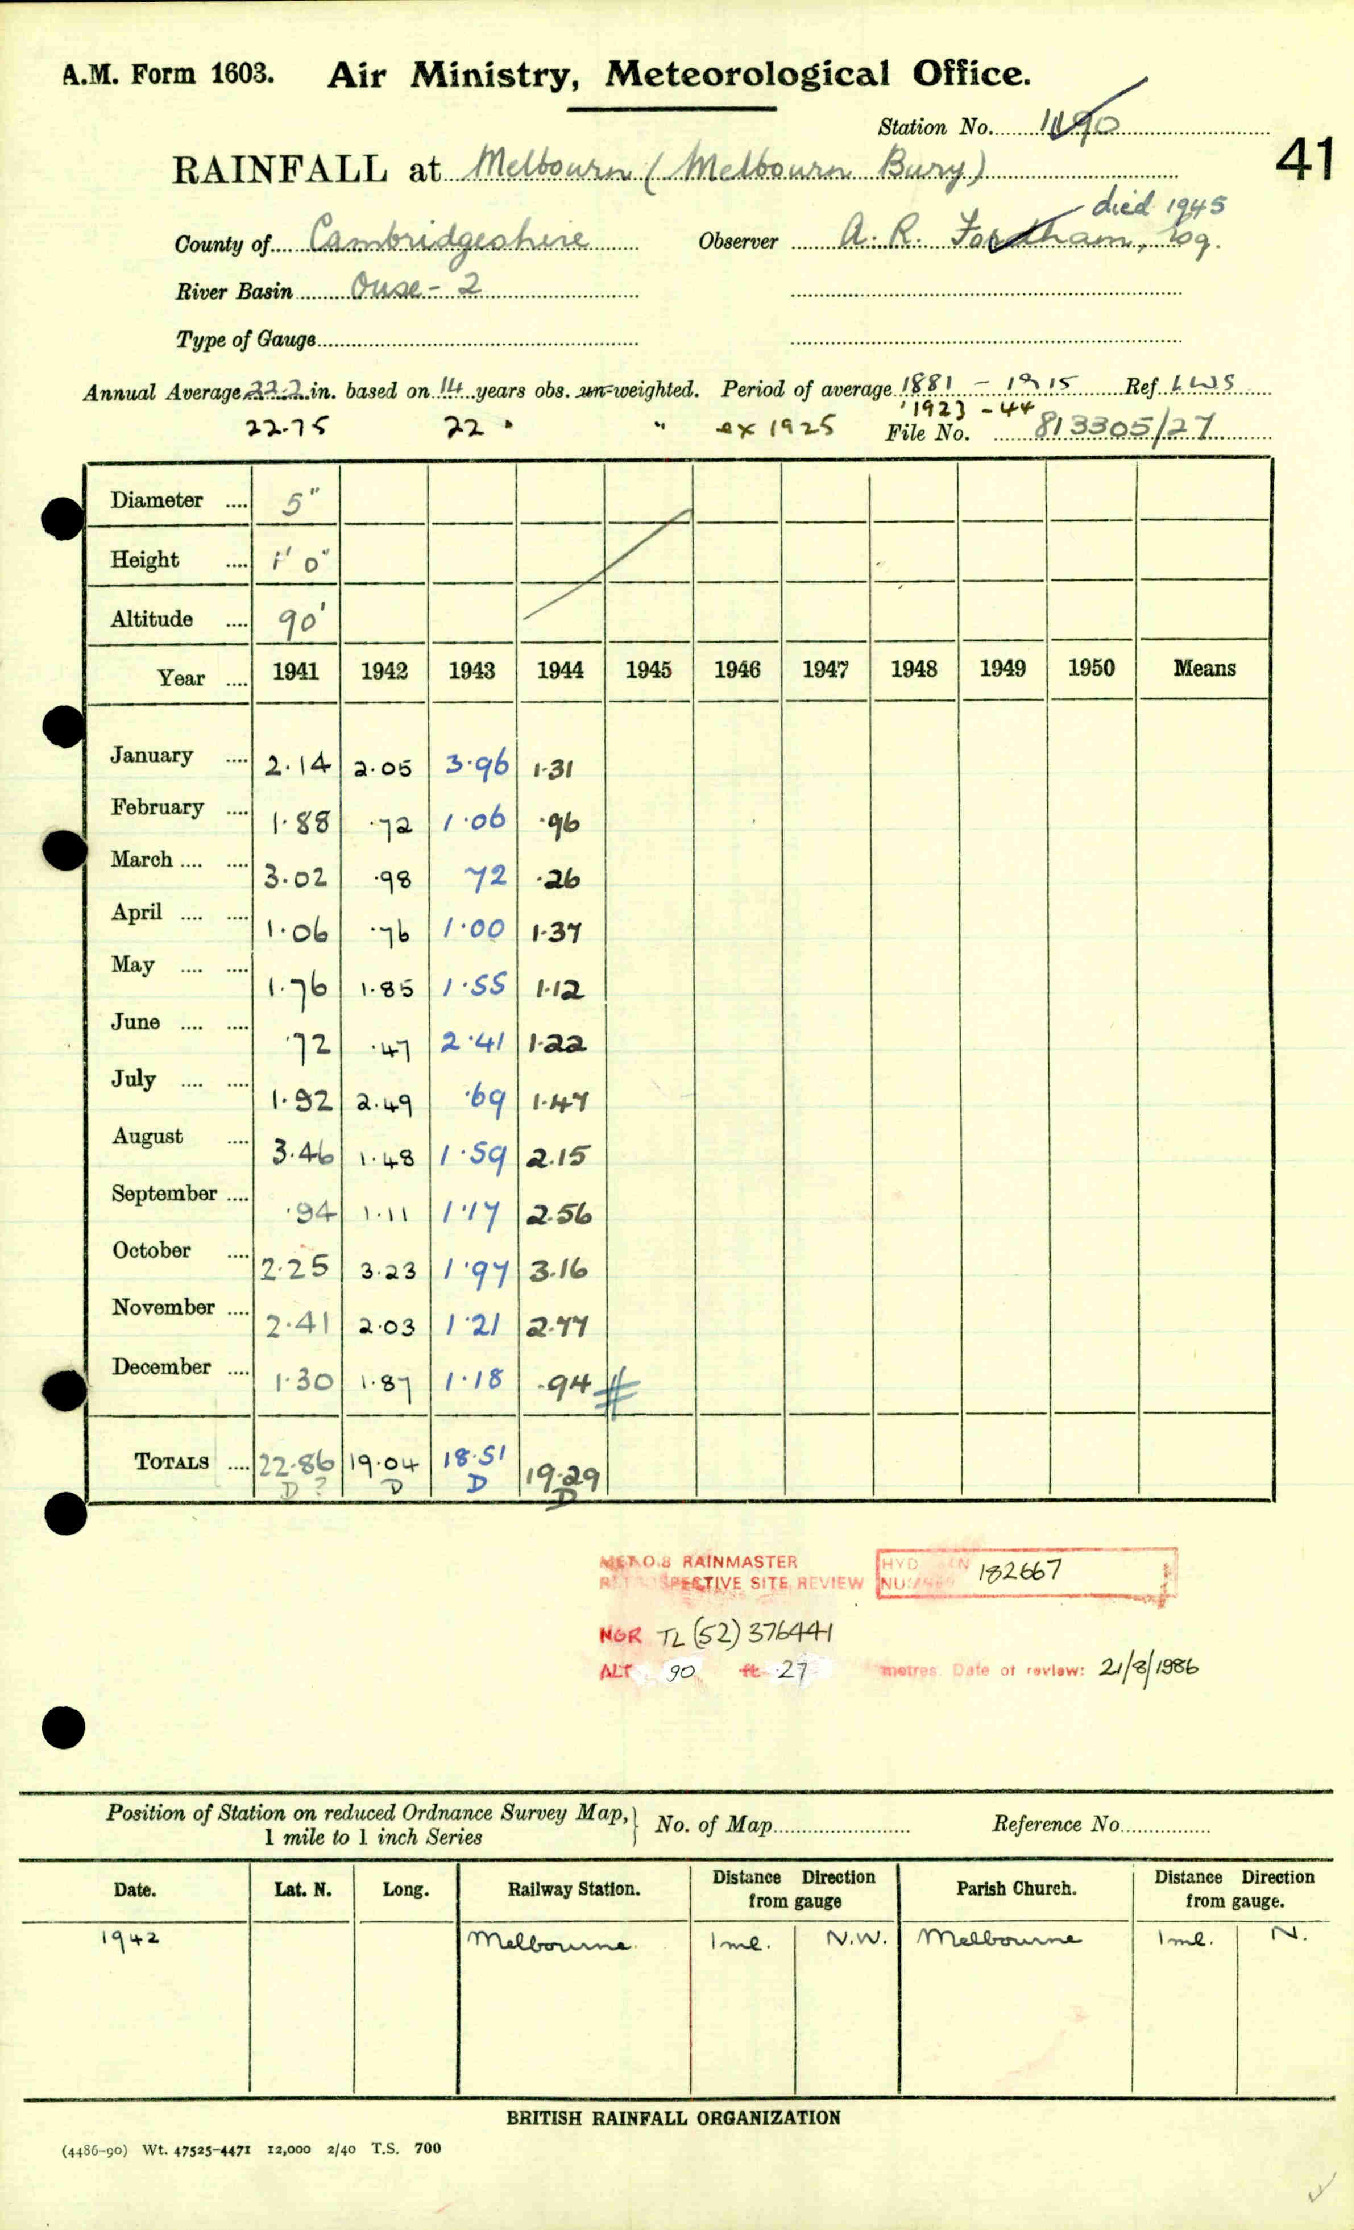 A.M. Form 1603. Air Ministry, Meteorological Office.
Station No. 1190
41
RAINFALL at Melbourn (Melbourn Bury)
died 1945
County of Cambridgeshire Observer A. R. Fordham, Esq.
River Basin Ouse - 2
Type of Gauge
Annual Average 22.2 in. based on 14 years obs. un-weighted. Period of average 1881 - 1915 Ref. LWS
1923 - 44
22.75 22 " " ex 1925 File No. 813305/27
Diameter .... 5"
Height .... 1' 0"
Altitude .... 90'
Year .... 1941 1942 1943 1944 1945 1946 1947 1948 1949 1950 Means
January .... 2.14 2.05 3.96 1.31
February .... 1.88 .72 1.06 .96
March .... .... 3.02 .98 72 .26
April .... .... 1.06 .76 1.00 1.37
May .... .... 1.76 1.85 1.55 1.12
June .... .... .72 .47 2.41 1.22
July .... .... 1.92 2.49 .69 1.47
August .... 3.46 1.48 1.59 2.15
September .... .94 1.11 1.17 2.56
October .... 2.25 3.23 1.97 3.16
November .... 2.41 2.03 1.21 2.77
December .... 1.30 1.87 1.18 .94
TOTALS .... 22.86 19.04 18.51 19.29
D ? D D D
MET.O.8 RAINMASTER
RETROSPECTIVE SITE REVIEW
HYD
NUMBER 182667
NGR TL (52) 376441
ALT 90 ft 27 metres Date of review: 21/8/1986
Position of Station on reduced Ordnance Survey Map, No. of Map Reference No
1 mile to 1 inch Series
Date. Lat. N. Long. Railway Station. Distance Direction from gauge Parish Church. Distance Direction from gauge.
1942 Melbourne. 1 ml. N.W. Melbourne 1 ml. N.
BRITISH RAINFALL ORGANIZATION
(4486-90) Wt. 47525-4471 12,000 2/40 T.S. 700